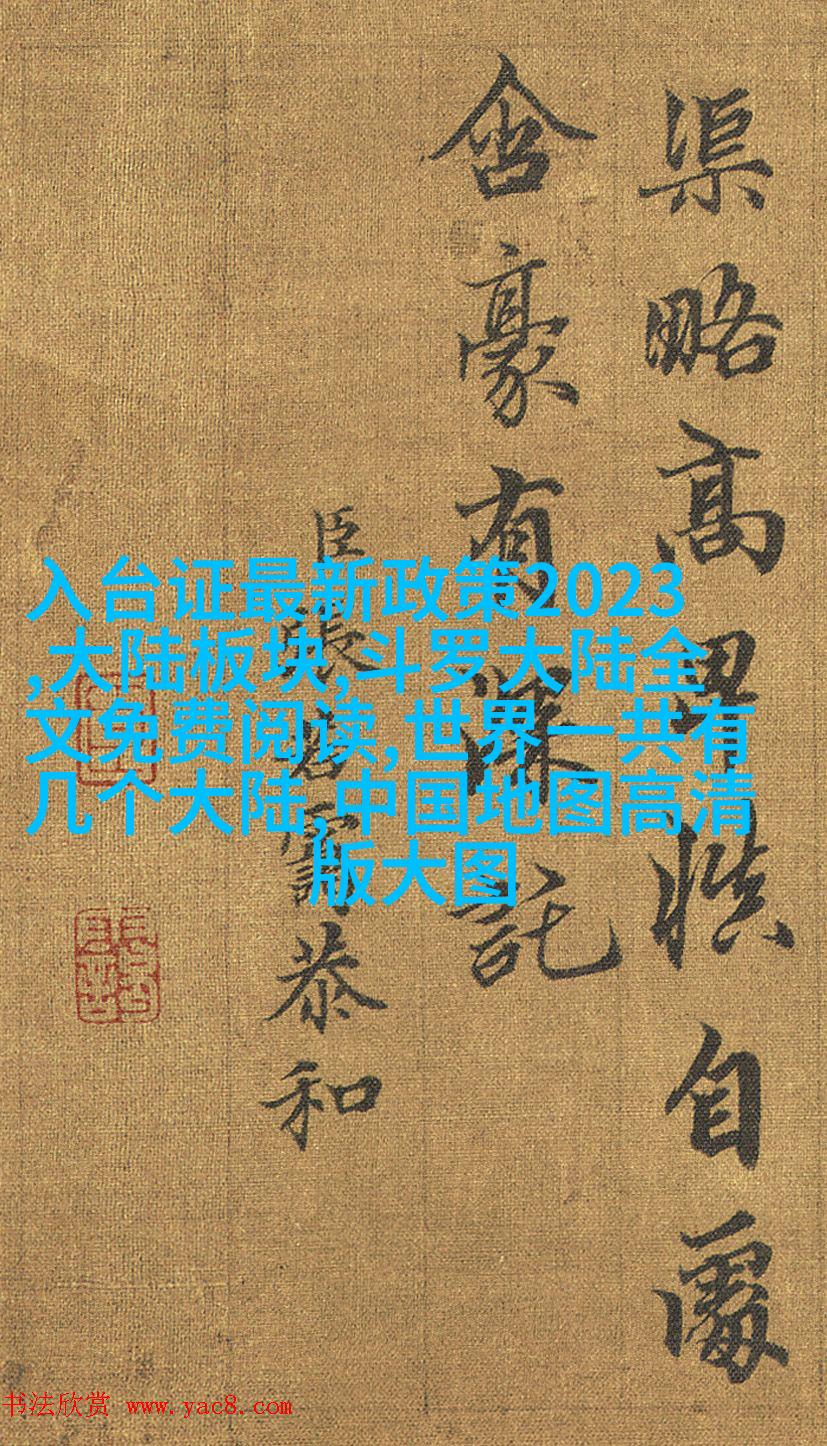 渠略高卑慎自處
含豪有深託
臣張若靄恭和
入台证最新政策2023
,大陆板块,斗罗大陆全
文免费阅读,世界一共有
几个大陆,中国地图高清
版大图
书法欣赏 www.yac8.com